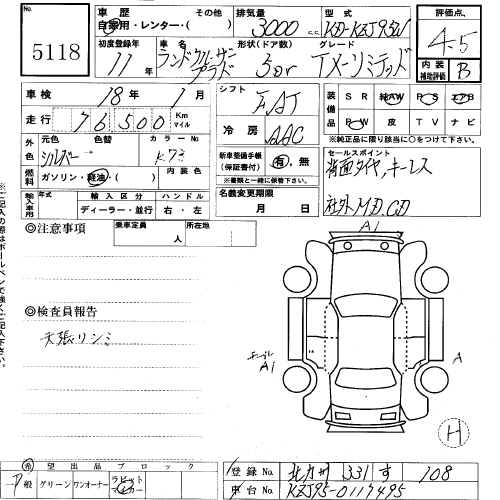 出品番号
5118
車歴
自家用・レンター・( )
その他
排気量
3000 c.c.
型式
KD-KZJ95W
評価点
4.5
内装補助評価
B
初度登録年
11年
車名
ランドクルーザープラド
形状(ドア数)
5Dr
グレード
TX-リミテッド
車検
18年 1月
走行
76500 Km マイル
シフト
FAT
冷房
AAC
装備品
SR 純AW PS エアB
PW 皮 TV ナビ
※純正品に限り該当に○をつけて下さい
外色
元色
シルバー
色替
カラーNo
K73
内装色
燃料
ガソリン・軽油・( )
新車整備手帳
(保証書付)
有・無
※書類と一緒に保管下さい。
セールスポイント
背面タイヤ、キーレス
社外MD,CD
輸入車用
年式
輸入区分
ディーラー・並行
ハンドル
右・左
名義変更期限
月 日
◎注意事項
乗車定員
人
所在地
◎検査員報告
天張りシミ
A1
A1
A
H
※ご記入の際はボールペンで強くご記入下さい。
希望出品ブロック
一般 グリーン ワンオーナー
登録No
北九州 331 す 108
車台No
KZJ95-0117495